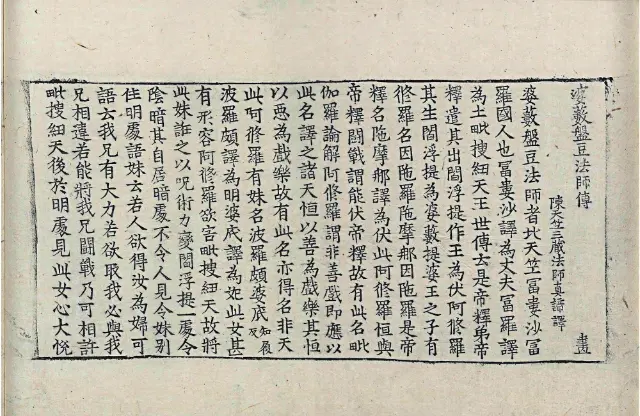 婆藪盤豆法師傳
陳天竺三藏法師真諦譯
畫
婆藪盤豆法師者北天竺冨婁沙冨
羅國人也冨婁沙譯為丈夫冨羅譯
為土毗搜紐天王世傳云是帝釋弟帝
釋遣其出閻浮提作王為伏阿修羅
其生閻浮提為婆藪提婆王之子有
修羅名因陁羅陁摩那因陁羅是帝
釋名陁摩那譯為伏此阿修羅恒與
帝釋闘戰謂能伏帝釋故有此名毗
伽羅論解阿修羅謂非善戲即應以
此名譯之諸天恒以善為戲樂其恒
以惡為戲樂故有此名亦得名非天
此阿修羅有妹名波羅頗婆底知履反
波羅頗譯為明婆底譯為妃此女甚
有形容阿修羅欲害毗搜紐天故將
此妹誑之以呪術力變閻浮提一處令
陰暗其自居暗處不令人見令妹別
住明處語妹云若人欲得汝為婦可
語云我兄有大力若欲取我必與我
兄相違若能將我兄闘戰乃可相許
毗搜紐天後於明處見此女心大悅